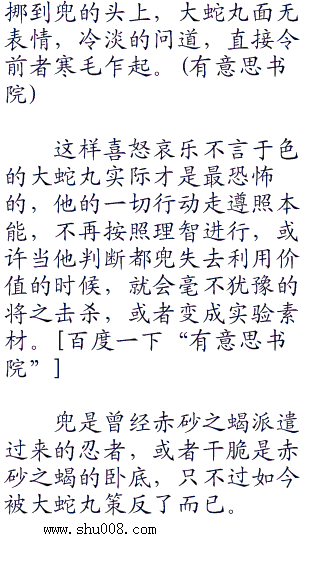 挪到兜的头上，大蛇丸面无
表情，冷淡的问道，直接令
前者寒毛乍起。(有意思书
院)
这样喜怒哀乐不言于色
的大蛇丸实际才是最恐怖
的，他的一切行动走遵照本
能，不再按照理智进行，或
许当他判断都兜失去利用价
值的时候，就会毫不犹豫的
将之击杀，或者变成实验素
材。[百度一下“有意思书
院”]
兜是曾经赤砂之蝎派遣
过来的忍者，或者干脆是赤
砂之蝎的卧底，只不过如今
被大蛇丸策反了而已。
www.shu008.com